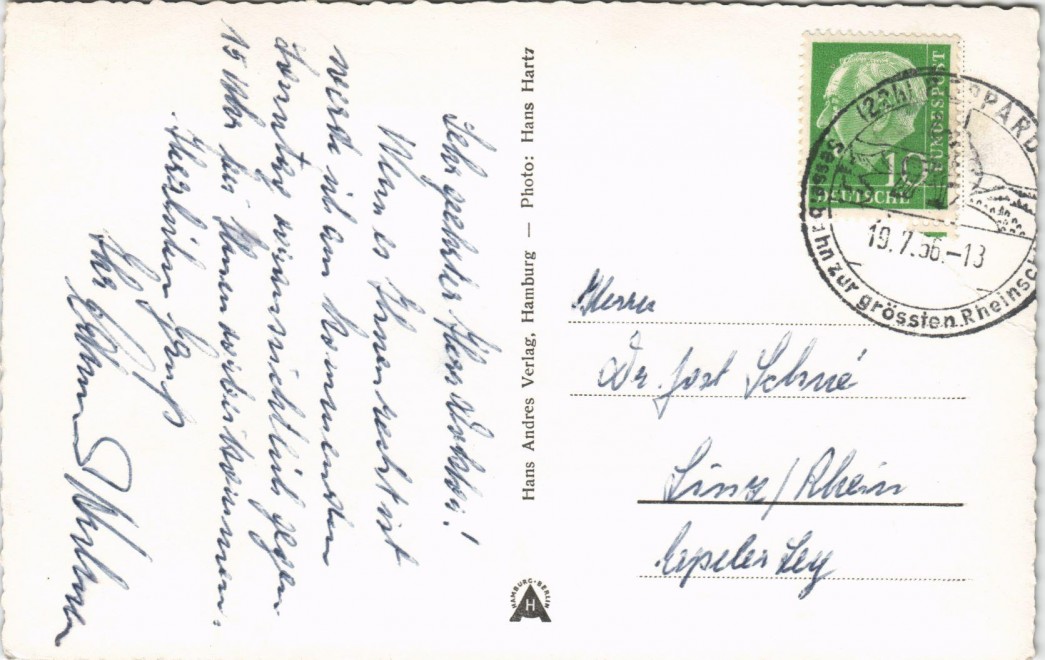 Sehr geehrter Herr Doktor!
Wenn es Ihnen recht ist
werde ich am kommenden
Sonntag voraussichtlich gegen
15 Uhr bei Ihnen vorbeikommen.
Herzlichen Gruß
Ihr
Hans Andres Verlag, Hamburg — Photo: Hans Hartz
HAMBURG-BERLIN
H
DEUTSCHE
BUNDESPOST
10
19.7.56.-13
Sesselbahn zur grössten Rheinschl
Herrn
Dr. Jost Schné
Linz/Rhein
Erpeler Ley